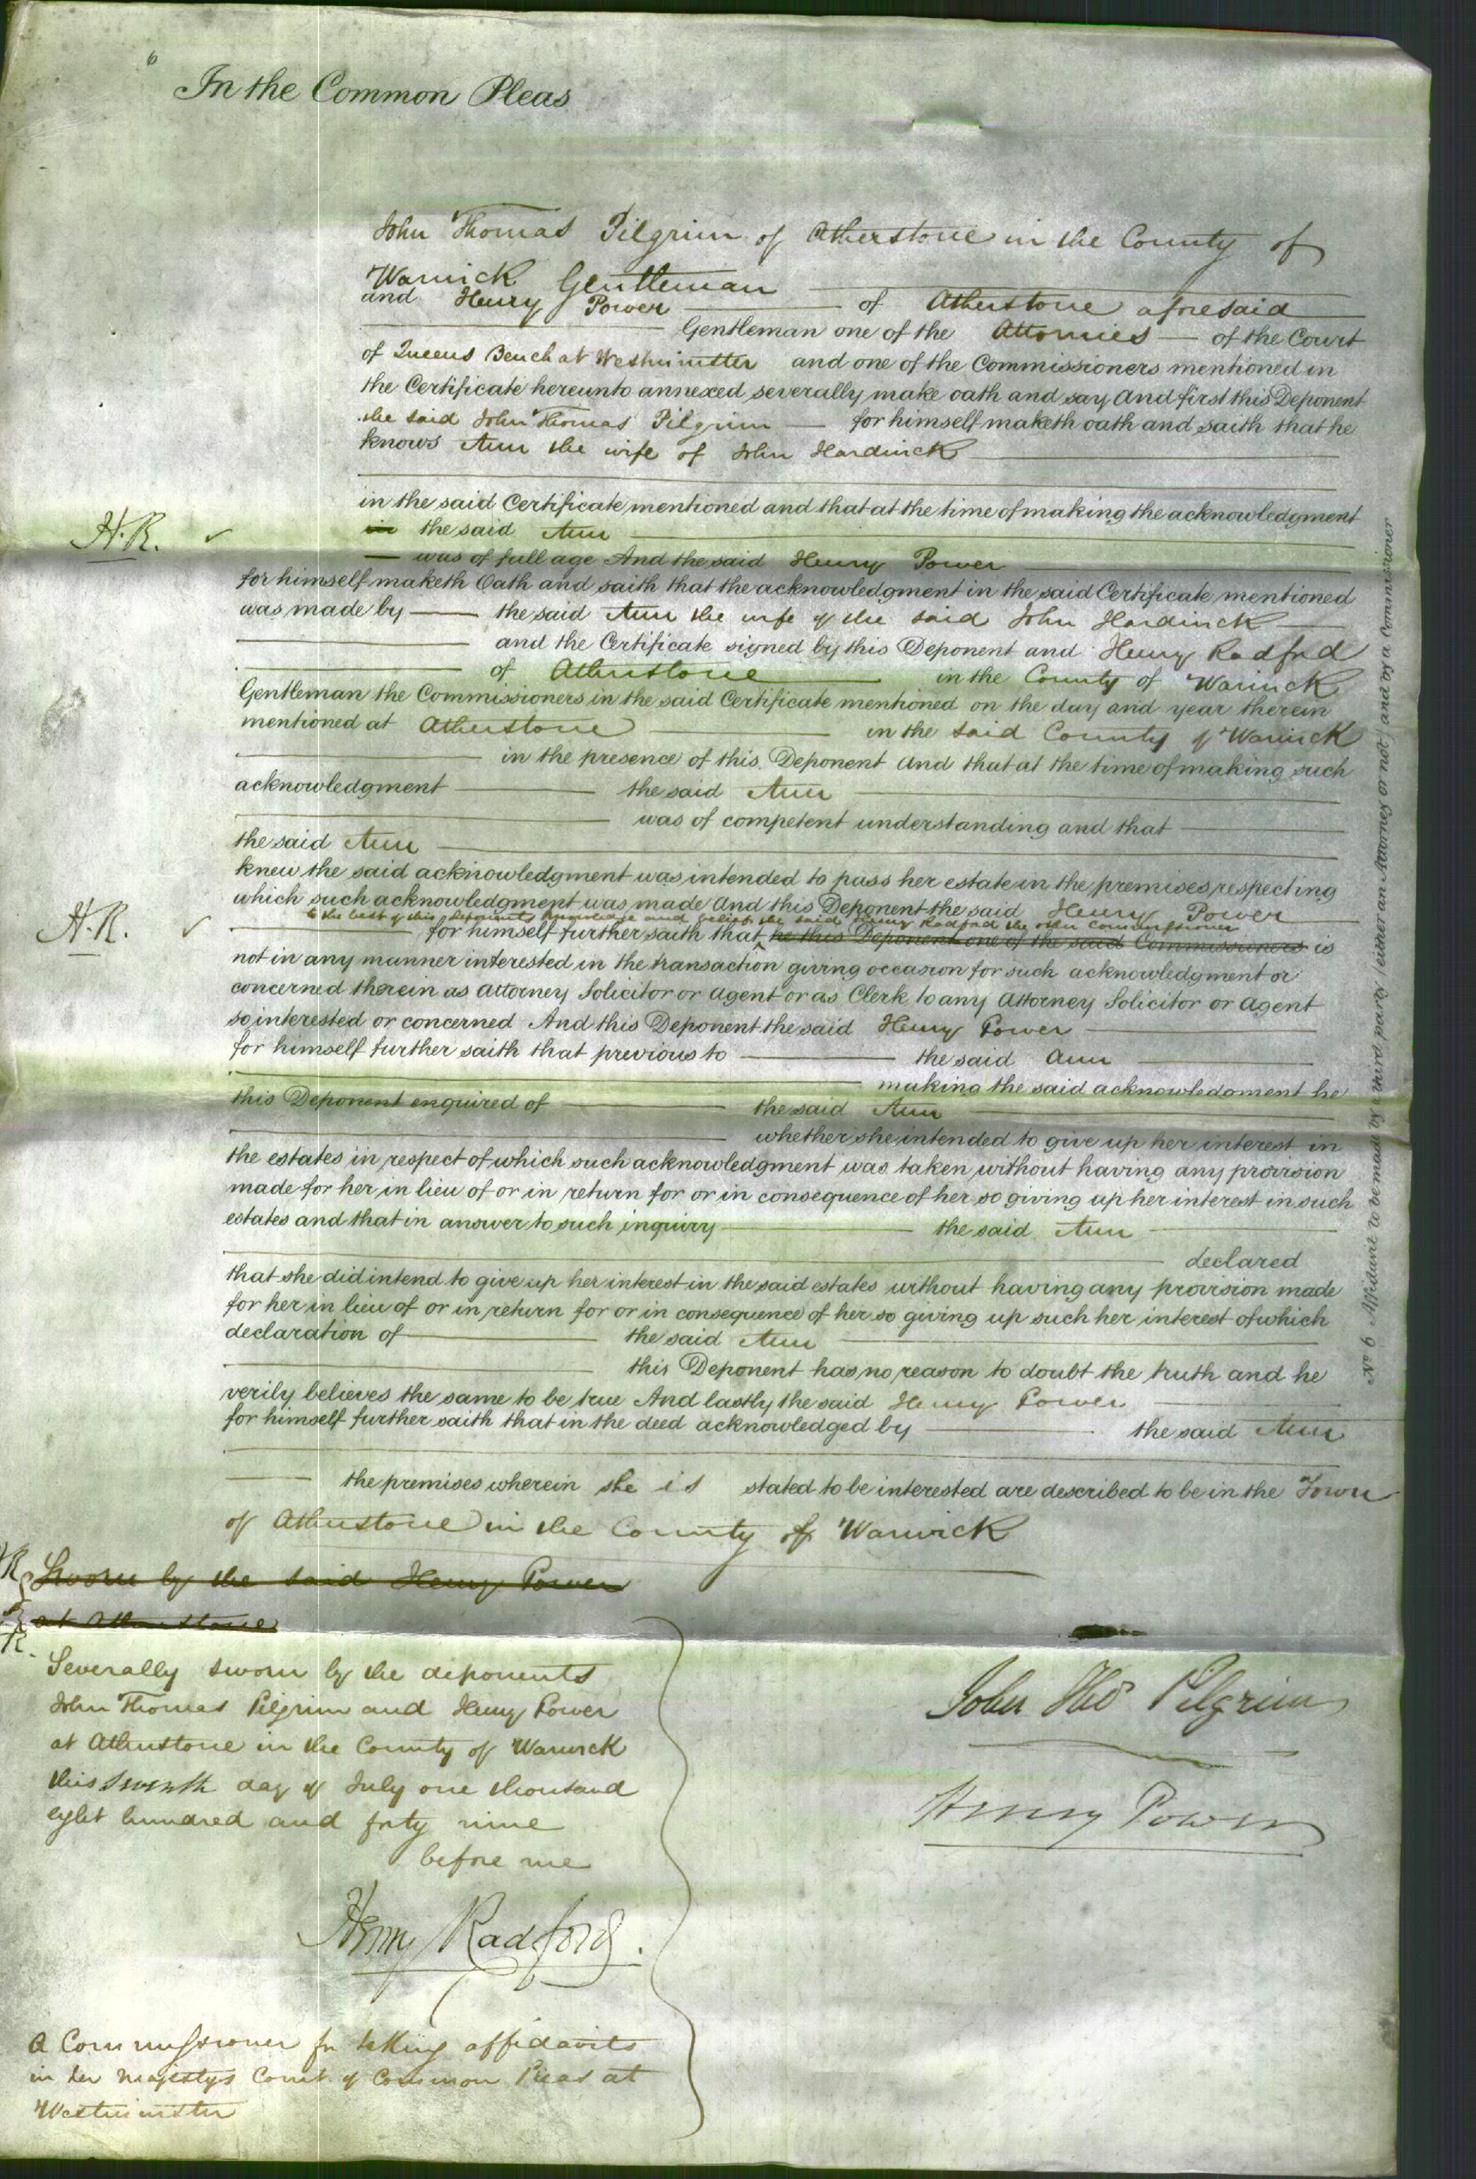 6
In the Common Pleas
John Thomas Pilgrim of Atherstone in the County of
Warwick Gentleman
and Henry Power of Atherstone aforesaid
Gentleman one of the Attornies of the Court
of Queens Bench at Westminster and one of the Commissioners mentioned in
the Certificate hereunto annexed severally make oath and say And first this Deponent
the said John Thomas Pilgrim for himself maketh oath and saith that he
knows Ann the wife of John Hardwick
in the said Certificate mentioned and that at the time of making the acknowledgment
H.R. the said Ann
was of full age And the said Henry Power
for himself maketh Oath and saith that the acknowledgment in the said Certificate mentioned
was made by the said Ann the wife of the said John Hardwick
and the Certificate signed by this Deponent and Henry Radford
of Atherstone in the County of Warwick
Gentleman the Commissioners in the said Certificate mentioned on the day and year therein
mentioned at Atherstone in the said County of Warwick
in the presence of this Deponent And that at the time of making such
acknowledgment the said Ann
was of competent understanding and that
the said Ann
knew the said acknowledgment was intended to pass her estate in the premises respecting
which such acknowledgment was made And this Deponent the said Henry Power
to the best of this Deponents knowledge and belief the said Henry Radford the other Commissioner
H.R. for himself further saith that he this Deponent one of the said Commissioners is
not in any manner interested in the transaction giving occasion for such acknowledgment or
concerned therein as Attorney Solicitor or Agent or as Clerk to any Attorney Solicitor or Agent
so interested or concerned And this Deponent the said Henry Power
for himself further saith that previous to the said Ann
making the said acknowledgment he
this Deponent enquired of the said Ann
whether she intended to give up her interest in
the estates in respect of which such acknowledgment was taken without having any provision
made for her in lieu of or in return for or in consequence of her so giving up her interest in such
estates and that in answer to such inquiry the said Ann
declared
that she did intend to give up her interest in the said estates without having any provision made
for her in lieu of or in return for or in consequence of her so giving up such her interest of which
declaration of the said Ann
this Deponent has no reason to doubt the truth and he
verily believes the same to be true And lastly the said Henry Power
for himself further saith that in the deed acknowledged by the said Ann
the premises wherein she is stated to be interested are described to be in the Town
of Atherstone in the County of Warwick
Sworn by the said Henry Power
at Atherstone
Severally sworn by the deponents
John Thomas Pilgrim and Henry Power
at Atherstone in the County of Warwick
this seventh day of July one thousand
eight hundred and forty nine
before me
Henry Radford.
A Commissioner for taking affidavits
in her Majestys Court of Common Pleas at
Westminster
John Thos Pilgrim
Henry Power
No 6 Affidavit to be made by a third party (either an Attorney or not) and by a Commissioner